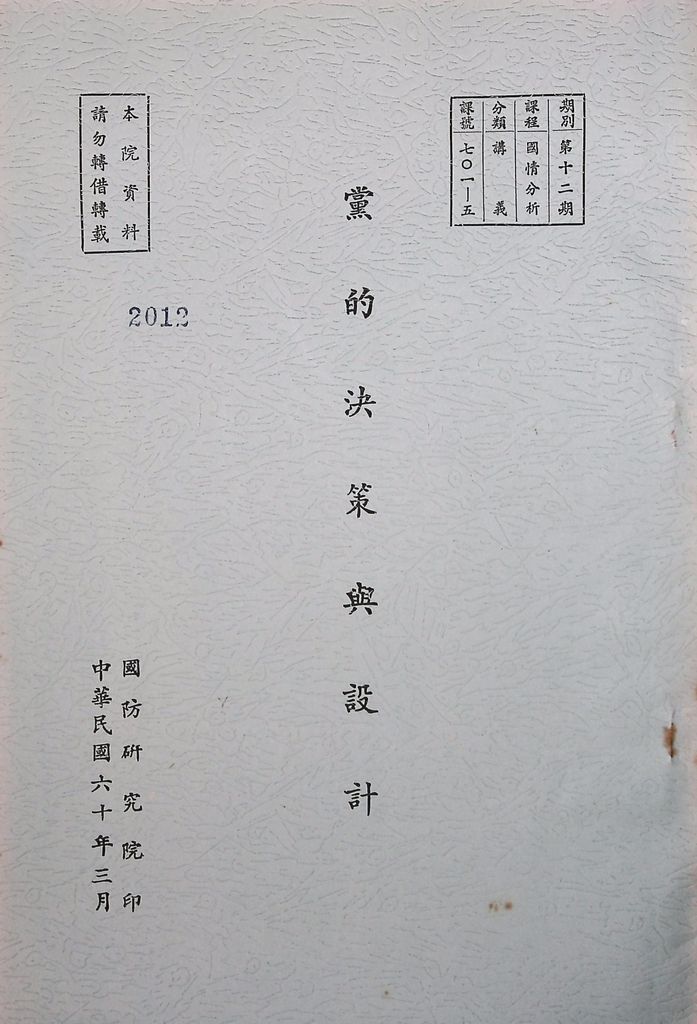 期別 第十二期
課程 國情分析
分類 講義
課號 七〇一—五
黨的決策與設計
本院資料
請勿轉借轉載
2012
國防研究院印
中華民國六十年三月